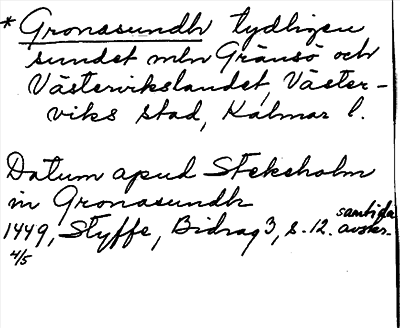 * Gronasundh tydligen
sundet mln Gränsö och
Västervikslandet, Väster-
viks stad, Kalmar l.
Datum apud Stekeholm
in Gronasundh
1449, Styffe, Bidrag 3, s. 12. samtida avskr.
4/5